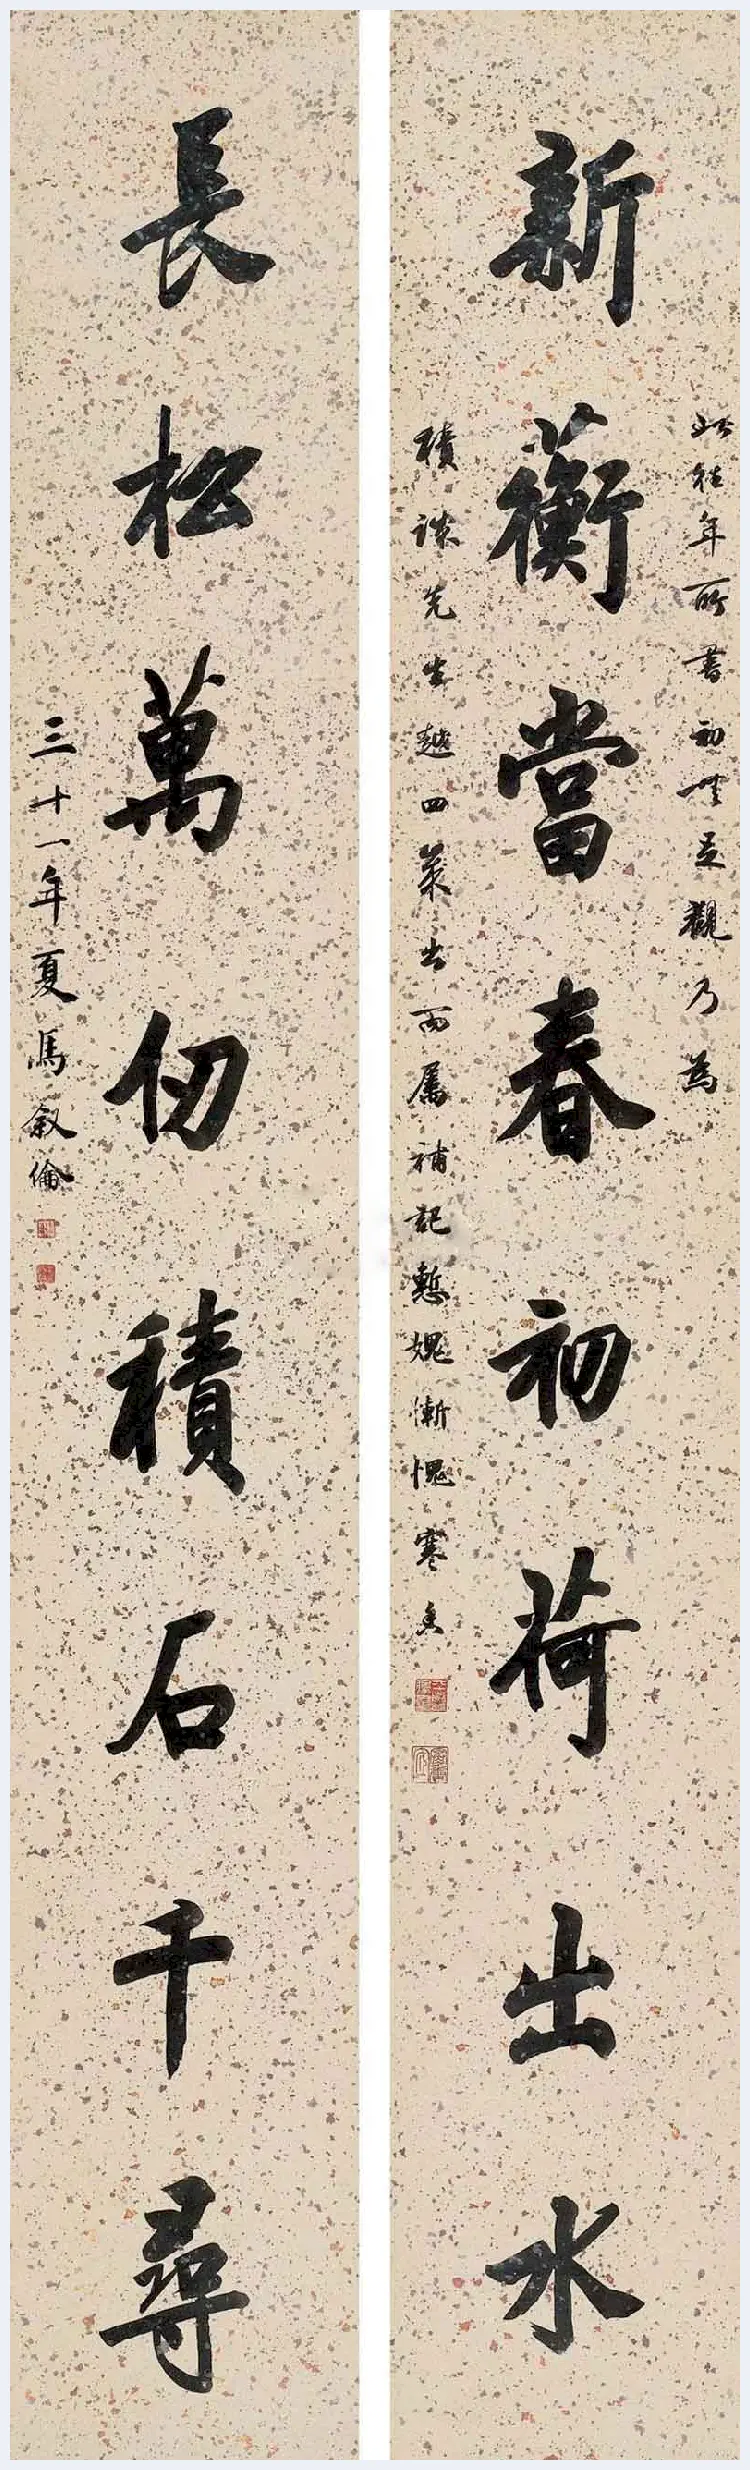 新蘅當春初荷出水
此往年所書初無足觀乃為
積談先生越四葉出而屬補記慙媿慚愧寒
長松萬仞積石千尋
三十一年夏馬叙倫